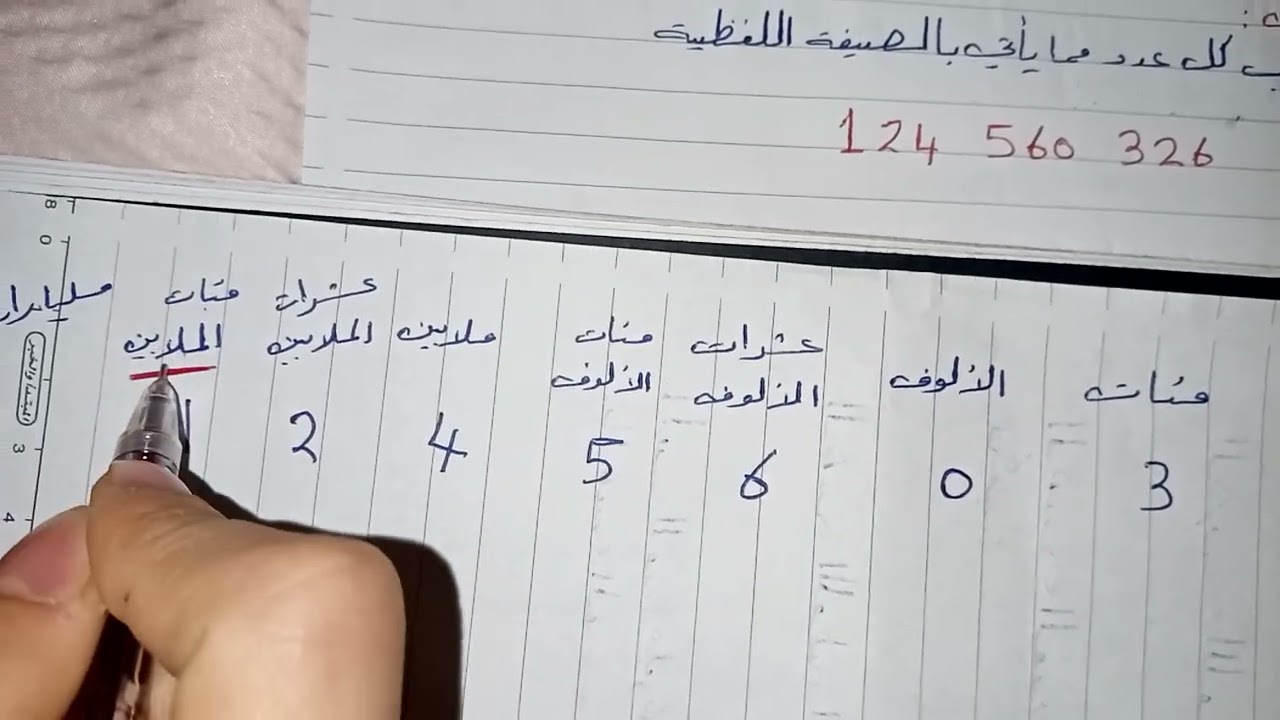 ب كل عدد مما يأتي بالصيغة اللفظية
124 560 326
مئات الألوف عشرات الألوف مئات الألوف ملايين عشرات الملايين مئات الملايين مليار
1 2 4 5 6 0 3
8
0
3
4